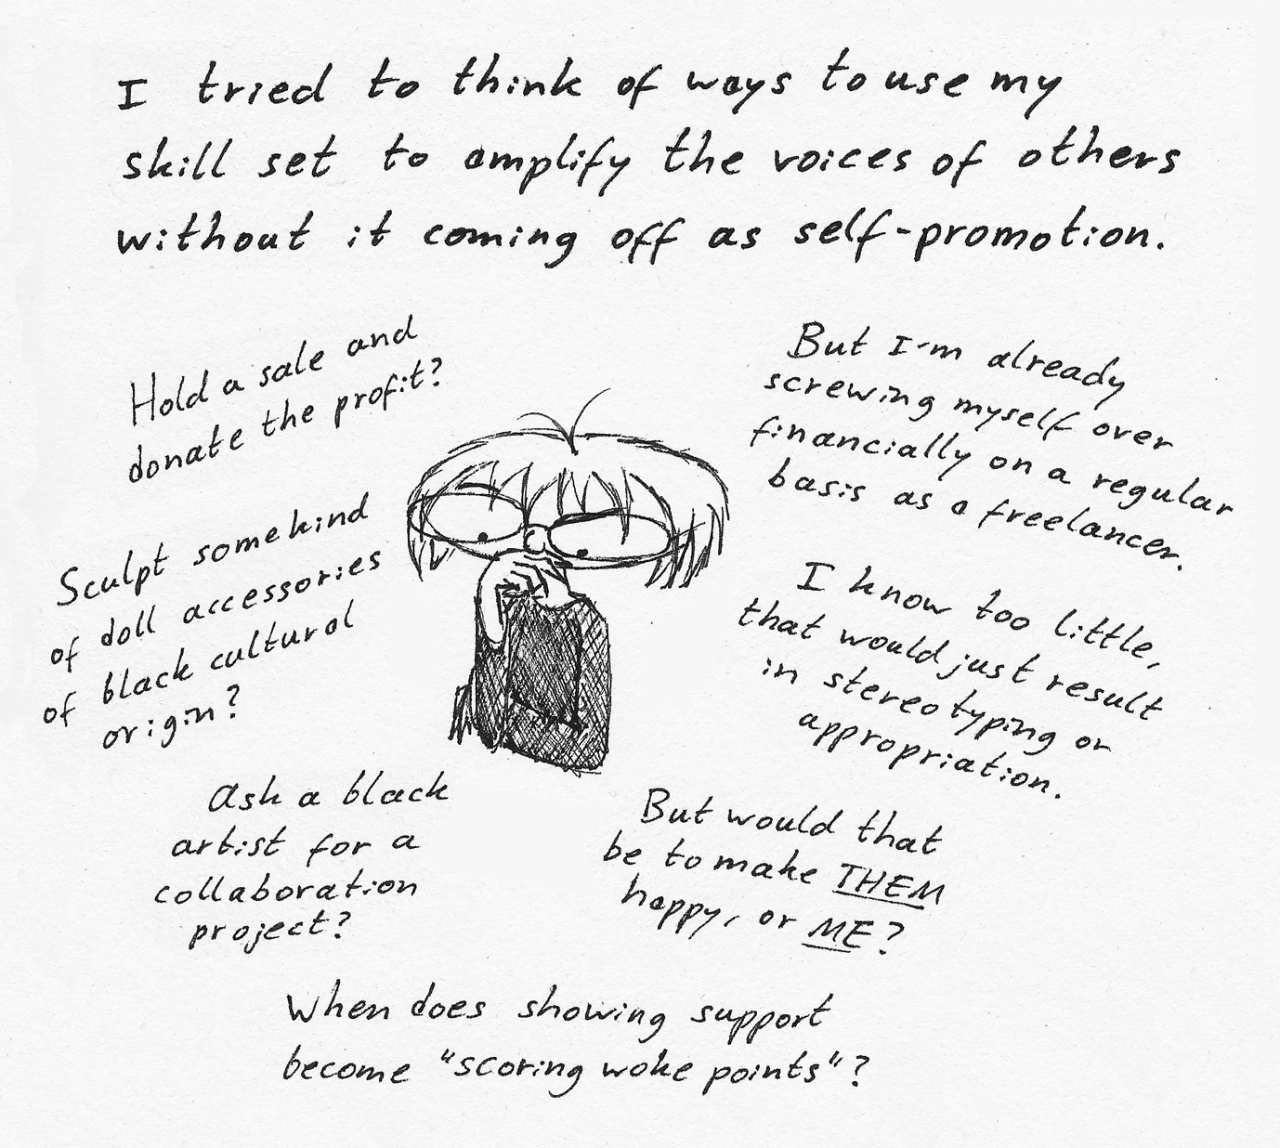 I tried to think of ways to use my
skill set to amplify the voices of others
without it coming off as self-promotion.
Hold a sale and
donate the profit?
But I'm already
screwing myself over
financially on a regular
basis as a freelancer.
Sculpt some kind
of doll accessories
of black cultural
origin?
I know too little,
that would just result
in stereotyping or
appropriation.
Ask a black
artist for a
collaboration
project?
But would that
be to make THEM
happy, or ME?
When does showing support
become "scoring woke points"?